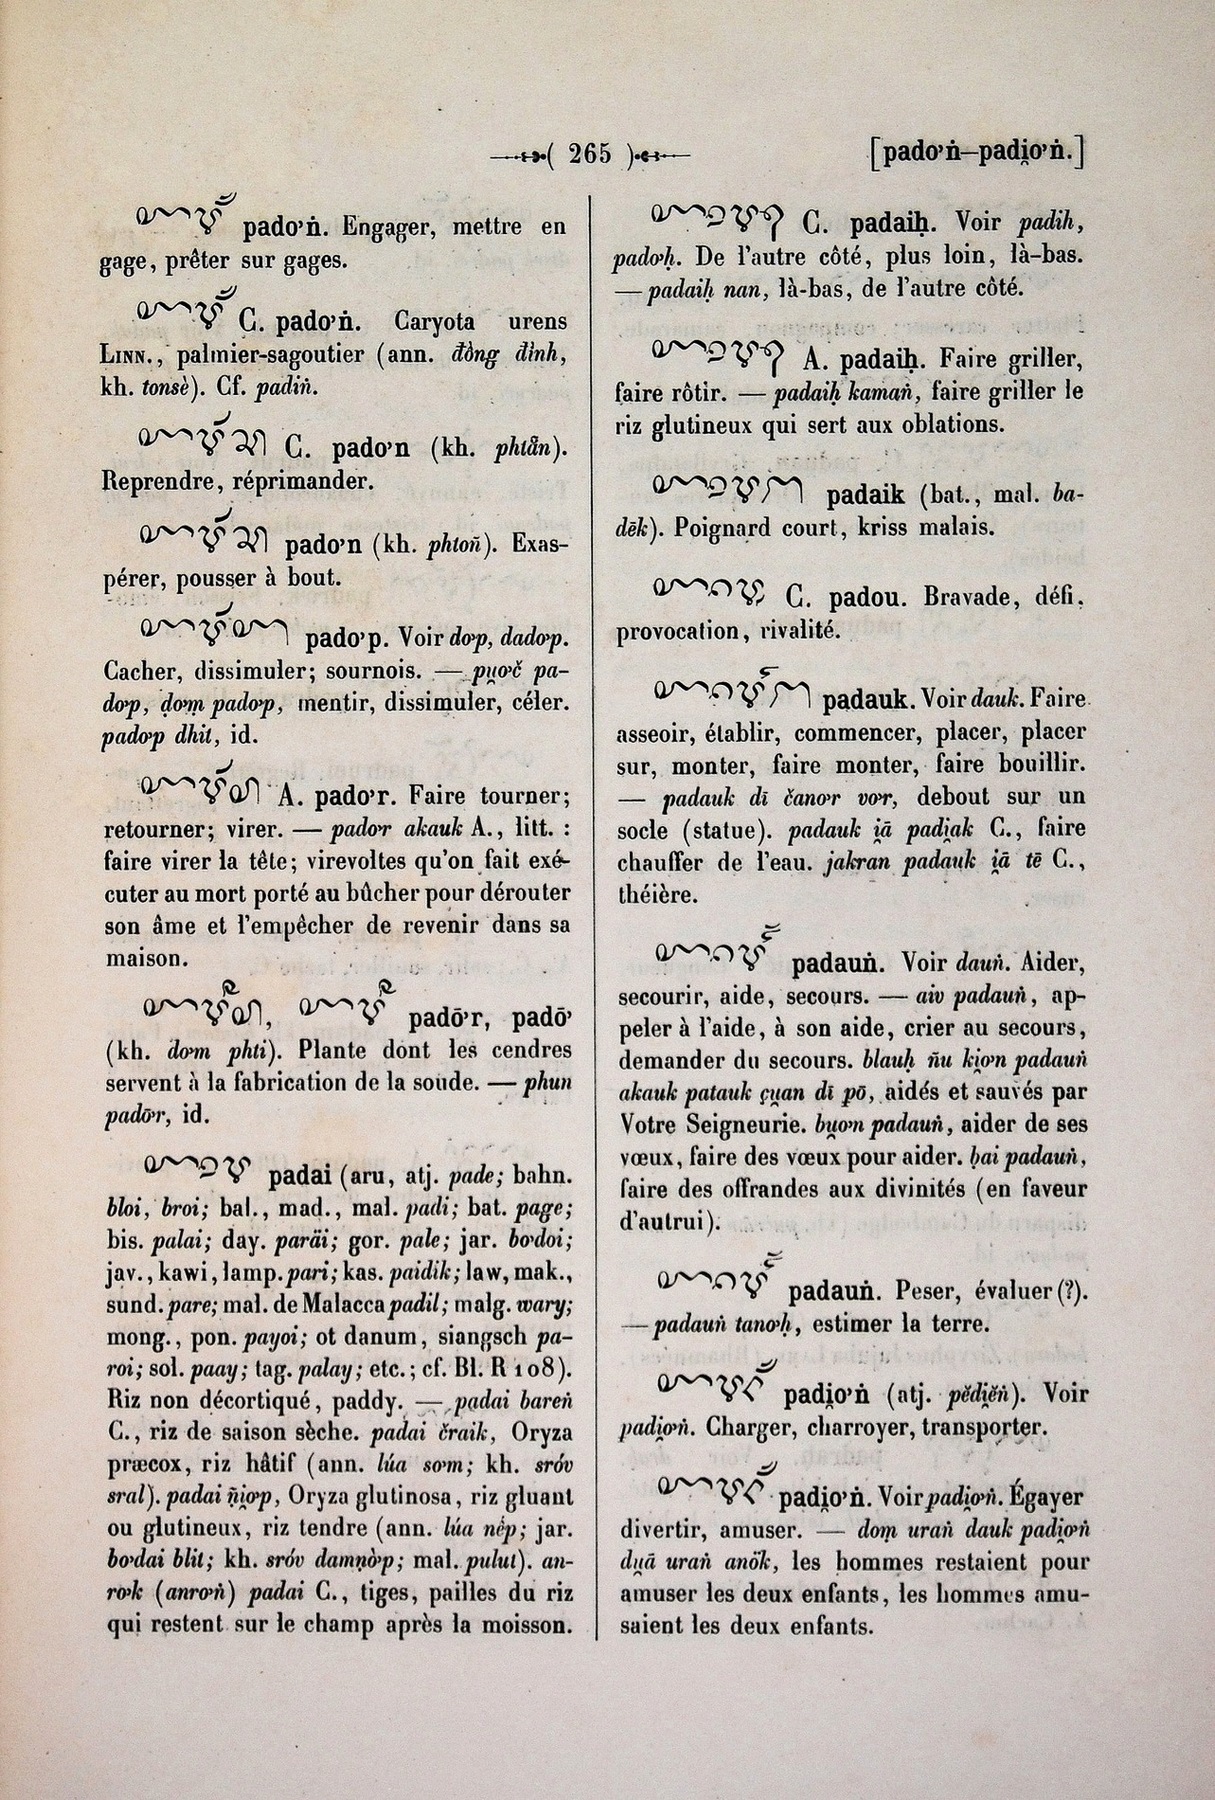 265
[pado’ṅ–padi̯o’ṅ.]
pado’ṅ. Engager, mettre en
gage, prêter sur gages.
C. pado’ṅ. Caryota urens
LINN., palmier-sagoutier (ann. đồng đình,
kh. tonsè). Cf. padiṅ.
C. pado’n (kh. phtăn).
Reprendre, réprimander.
pado’n (kh. phtoñ). Exas-
pérer, pousser à bout.
pado’p. Voir do’p, dado’p.
Cacher, dissimuler; sournois. — pu̯o’č pa-
do’p, ḍo’ṃ pado’p, mentir, dissimuler, céler.
pado’p dhit, id.
A. pado’r. Faire tourner;
retourner; virer. — pado’r akauk A., litt. :
faire virer la tête; virevoltes qu’on fait exé-
cuter au mort porté au bûcher pour dérouter
son âme et l’empêcher de revenir dans sa
maison.
padō’r, padō’
(kh. do’m phti). Plante dont les cendres
servent à la fabrication de la soude. — phun
padō’r, id.
padai (aru, atj. pade; bahn.
bloi, broi; bal., mad., mal. padi; bat. page;
bis. palai; day. paräi; gor. pale; jar. bo’doi;
jav., kawi, lamp. pari; kas. paidik; law, mak.,
sund. pare; mal. de Malacca padil; malg. wary;
mong., pon. payoi; ot danum, siangsch pa-
roi; sol. paay; tag. palay; etc.; cf. Bl. R 108).
Riz non décortiqué, paddy. — padai bareṅ
C., riz de saison sèche. padai čraik, Oryza
præcox, riz hâtif (ann. lúa so’m; kh. sróv
sral). padai ñi̯o’p, Oryza glutinosa, riz gluant
ou glutineux, riz tendre (ann. lúa nếp; jar.
bo’dai blit; kh. sróv damṇò’p; mal. pulut). an-
ro’k (anro’ṅ) padai C., tiges, pailles du riz
qui restent sur le champ après la moisson.
C. padaiḥ. Voir padih,
pado’ḥ. De l’autre côté, plus loin, là-bas.
— padaiḥ nan, là-bas, de l’autre côté.
A. padaiḥ. Faire griller,
faire rôtir. — padaiḥ kamaṅ, faire griller le
riz glutineux qui sert aux oblations.
padaik (bat., mal. ba-
dēk). Poignard court, kriss malais.
C. padou. Bravade, défi,
provocation, rivalité.
padauk. Voir dauk. Faire
asseoir, établir, commencer, placer, placer
sur, monter, faire monter, faire bouillir.
— padauk dī čano’r vo’r, debout sur un
socle (statue). padauk i̯ā padi̯ak C., faire
chauffer de l’eau. jakran padauk i̯ā tē C.,
théière.
padauṅ. Voir dauṅ. Aider,
secourir, aide, secours. — aiv padauṅ, ap-
peler à l’aide, à son aide, crier au secours,
demander du secours. blauḥ ñu ki̯o’n padauṅ
akauk patauk çu̯an dī pō, aidés et sauvés par
Votre Seigneurie. bu̯o’n padauṅ, aider de ses
vœux, faire des vœux pour aider. ḅai padauṅ,
faire des offrandes aux divinités (en faveur
d’autrui).
padauṅ. Peser, évaluer (?).
— padauṅ tano’ḥ, estimer la terre.
padi̯o’ṅ (atj. pĕdi̯ĕṅ). Voir
padi̯o’ṅ. Charger, charroyer, transporter.
padi̯o’ṅ. Voir padi̯o’ṅ. Égayer
divertir, amuser. — doṃ uraṅ dauk padi̯o’ṅ
du̯ā uraṅ anö̆k, les hommes restaient pour
amuser les deux enfants, les hommes amu-
saient les deux enfants.